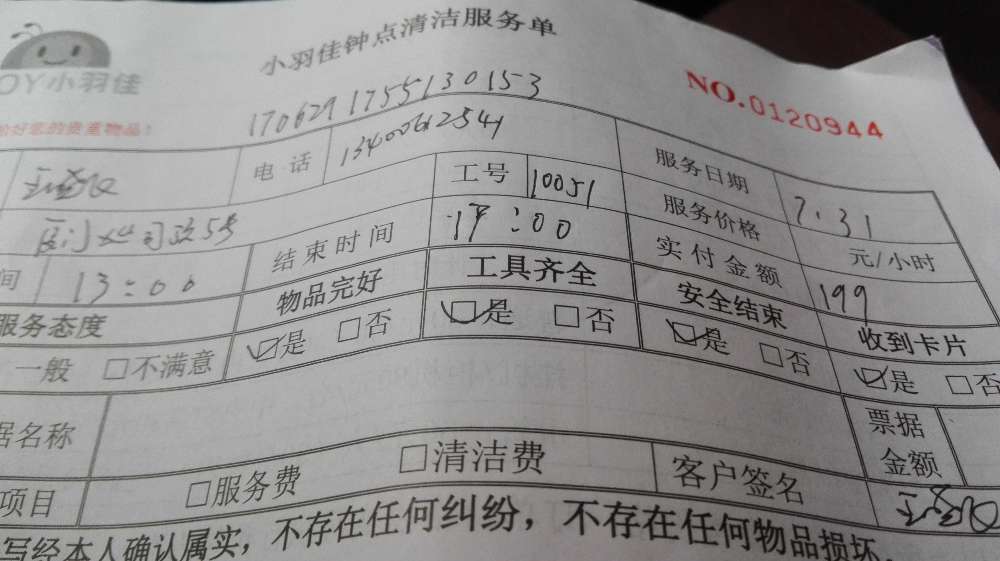 小羽佳钟点清洁服务单
OY小羽佳
NO.0120944
好您的贵重物品！
170629175513 0153
电话 13400612541 服务日期 7.31
工号 10051 服务价格 元/小时
间 13:00 结束时间 17:00 实付金额 199
服务态度 物品完好 工具齐全 安全结束 收到卡片
一般 □不满意 ☑是 □否 ☑是 □否 ☑是 □否 ☑是 □否
据名称 票据金额
项目 □服务费 □清洁费 客户签名
写经本人确认属实，不存在任何纠纷，不存在任何物品损坏